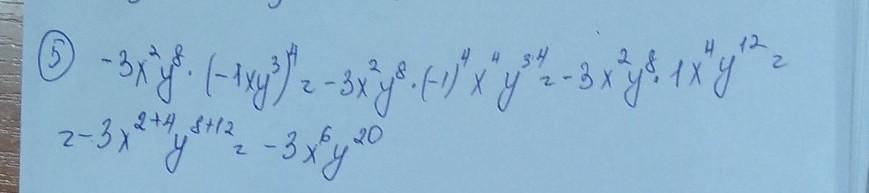 ⑤ -3x²y⁸ · (-1xy³)⁴ = -3x²y⁸ · (-1)⁴ x⁴ y³·⁴ = -3x²y⁸ · 1x⁴y¹² =
= -3x²⁺⁴y⁸⁺¹² = -3x⁶y²⁰